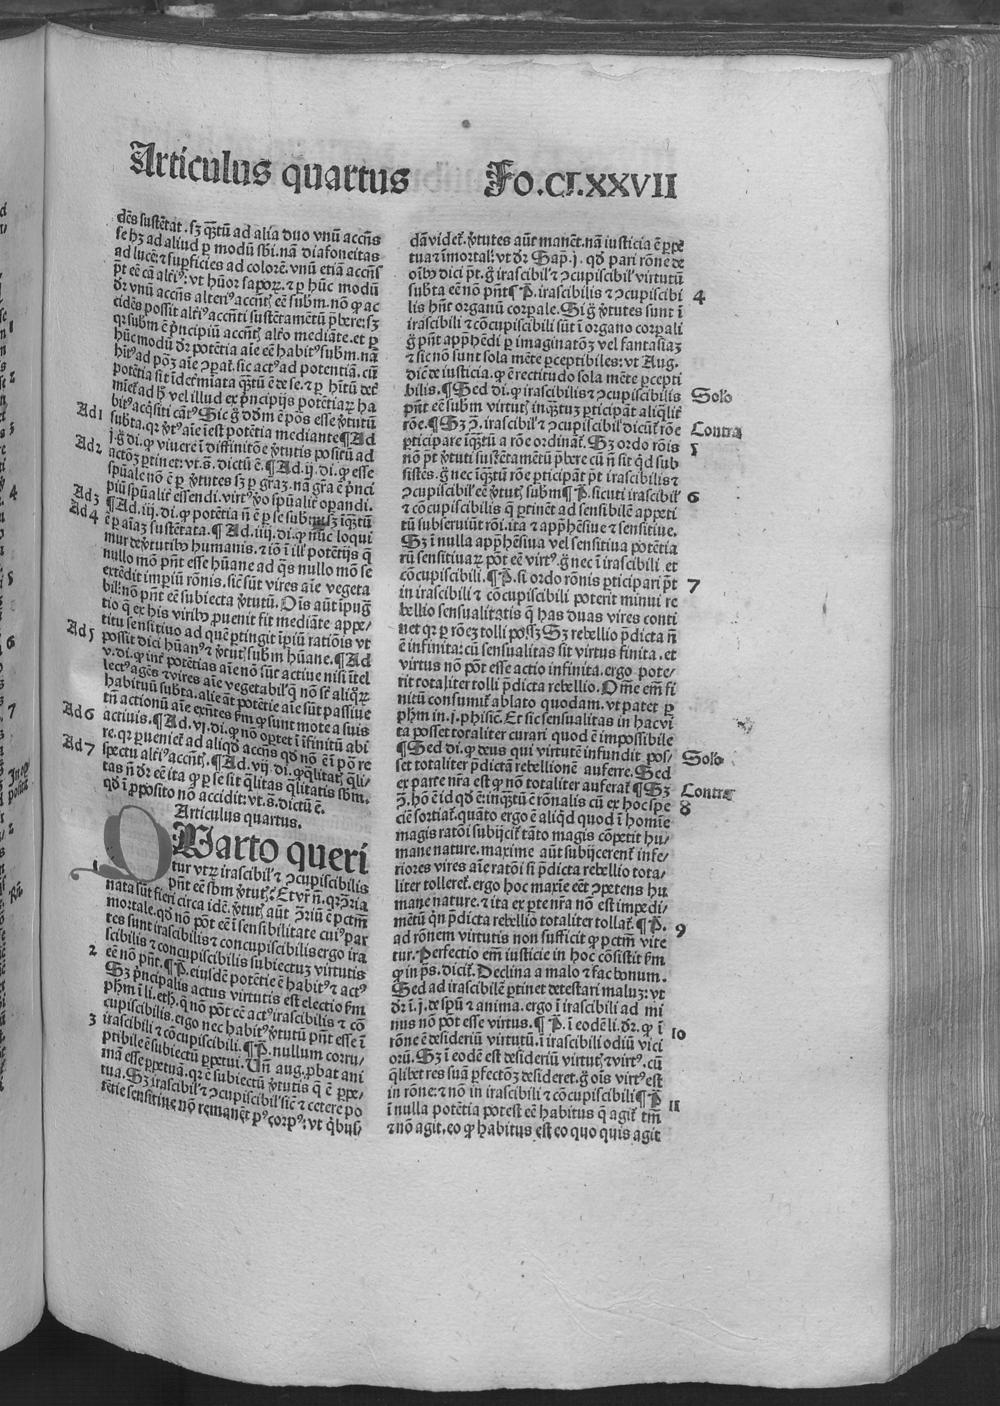 Articulus quartus Fo.CLXXVII
dēs sustētat. sꝫ q̄ꝫtū ad alia duo vnū accn̄s
se hꝫ ad aliud ꝑ modū sb̄i. nā diafoneitas
ad lucē: ⁊ suꝑficies ad colorē. vnū etiā accn̄s
p̄t eē cā alteriꝰ: vt hūor saporꝝ. ⁊ ꝑ hūc modū
dr̄ vnū accn̄s alteriꝰ accn̄tꝭ eē subm̄. nō ꝙ ac
cidēs possit alteriꝰ accn̄ti sustētamētū p̄bere: sꝫ
qꝛ subm̄ ē p̄ncipiū accn̄tꝭ altero mediāte. et ꝑ
hūc modū dr̄ potētia aīe eē habitꝰ subm̄. nā
Ad 1
subta. qꝛ v̓tꝰ aīe īest potētia mediante ¶ Ad
j. g̊ di. ꝙ viuere ī diffinitōe v̓tutis positū ad
Ad 2
actōꝫ ꝑtinet: vt. s̄. dictū ē. ¶ Ad. ij. di. ꝙ esse
spūale nō ē ꝑ v̓tutes sꝫ ꝑ gr̄aꝫ. nā gr̄a ē p̄nci
piū spūaliter essendi. virtꝰ v̓o spūaliter operandi.
Ad 3
¶ Ad. iij. di. ꝙ potētia nō ē ꝑ se subm̄ sꝫ īq̄ꝫtū
Ad 4
ē ꝑ aīaꝫ sustētata. ¶ Ad. iiij. di. ꝙ nūc loqui
mur de v̓tutibꝰ humanis. ⁊ iō ī ill' potētijs q̄
nullo mō pn̄t esse hūane ad q̄s nullo mō se
extēdit imperiū rōnis. sic̄ sūt vires aīe vegeta
bil'. nō pn̄t eē subiecta v̓tutū. Oīs aūt īpug̓
tio q̄ ex his viribꝰ ꝓuenit fit mediāte appe/
titu sensitiuo ad quē ꝑtingit īperiū ratiōis vt
Ad 5
possit dici hūanꝰ ⁊ v̓tutꝭ subm̄ hūane. ¶ Ad
v. di. ꝙ inter potētias aīe nō sūt actiue nisi ītel
lectꝰ agēs ⁊ vires aīe vegetabil' q̄ nō sūt aliqꝝ
habituū subta. alie aūt potētie aīe sūt passiue
Ad 6
actiuis. ¶ Ad. vj. di. ꝙ nō oportet ī īfinitū abi
re. qꝛ ꝑueniet ad aliqd̄ accn̄s qd̄ nō ē ī po re
Ad 7
spectu alteriꝰ accn̄tꝭ. ¶ Ad. vij. di. ꝙ q̄litatꝭ q̄li-
tas nō dr̄ eē ita ꝙ ꝑ se sit q̄litas q̄litatis sbm̄.
qd̄ ī ꝓposito nō accidit: vt. s̄. dictū ē.
Articulus quartus.
QVarto queri
tur vtꝝ irascibil' ⁊ ꝯcupiscibilis
pn̄t eē sbm̄ v̓tutꝭ. Et vr̄ nō. qꝛ ꝯ̄ria
nata sūt fieri circa idē. v̓tutꝭ aūt ꝯ̄riū ē pctm̄
mortale. qd̄ nō pōt eē ī sensibilitate cuiꝰ par
tes sunt irascibilis ⁊ concupiscibilis ergo ira
scibilis ⁊ concupiscibilis subiectuꝫ virtutis
2
eē nō pn̄t. ¶ P̄. eiusdē potētie ē habitꝰ ⁊ actꝰ
Sꝫ p̄ncipalis actus virtutis est electio s̄m
ph̄m ī li. eth. q̄ nō pōt eē actꝰ irascibilis ⁊ cō
cupiscibilis. ergo nec habitꝰ v̓tutū pn̄t esse ī
3
irascibili ⁊ cōcupiscibili. ¶ P̄. nullum corru/
ptibile ē subiectū perpetui. Vn̄ aug. ꝓbat ani
mā esse ꝑpetuā. qꝛ ē subiectū v̓tutis q̄ ē ꝑpe/
tua. Sꝫ irascibil' ⁊ ꝯcupiscibil' sic̄ ⁊ cetere po
tētie sensitiue nō remanēt pꝰ corpꝰ: vt q̓busꝭ
dā videtur. v̓tutes aūt manēt. nā iusticia ē ꝑpe
tua ⁊ īmortal': vt dr̄ Sap. j. qd̄ pari rōne de
oībꝰ dici p̄t. g̊ irascibil' ⁊ ꝯcupiscibil' virtutū
subta eē nō pn̄t ¶ P̄. irascibilis ⁊ ꝯcupiscibi
4
lis hn̄t organū corꝑale. Si g̊ v̓tutes sunt ī
irascibili ⁊ cōcupiscibili sūt ī organo corꝑali
g̊ pn̄t app̄hēdi ꝑ imaginatōꝫ vel fantasiaꝫ
⁊ sic nō sunt sola mēte ꝑceptibiles: vt Aug.
diē de iusticia. ꝙ ē rectitudo sola mēte ꝑcepti
bilis. ¶ Sed di. ꝙ irascibilis ⁊ ꝯcupiscibilis
Solo
pn̄t eē subm̄ virtutꝭ inq̄ꝫtuꝫ ꝑticipant aliqͥliter
rōe. ¶ Sꝫ ꝯ̄. irascibil' ⁊ ꝯcupiscibil' dicūtur rōe
Contra
ꝑticipare īq̄ꝫtū a rōe ordinātur. Sꝫ ordo rōis
5
nō p̄t v̓tuti sustētamētū p̄bere cū nō sit qͥd sub
sistēs. g̊ nec īq̄ꝫtū rōe ꝑticipāt p̄t irascibilis ⁊
ꝯcupiscibil' eē v̓tutꝭ subm̄ ¶ P̄. sicuti irascibil'
6
⁊ cōcupiscibilis q̄ ꝑtinēt ad sensibilē appeti
tū subseruiūt rōi. ita ⁊ app̄hēsiue ⁊ sensitiue.
Sꝫ ī nulla app̄hēsiua vel sensitiua potētia
rū sensitiuarꝝ pōt eē virtꝰ. g̊ nec ī irascibili et
cōcupiscibili. ¶ P̄. si ordo rōnis ꝑticipari p̄t
7
in irascibili ⁊ cōcupiscibili poterit minui re
bellio sensualitatis q̄ has duas vires conti
net qꝛ ꝑ rōeꝫ tolli possꝫ Sꝫ rebellio p̄dicta nō
ē infinita: cū sensualitas sit virtus finita. et
virtus nō pōt esse actio infinita. ergo pote/
rit totaliter tolli p̄dicta rebellio. Om̄e em̄ fi
nitū consumitur ablato quodam. vt patet ꝑ
ph̄m in. j. phisic̄. Et sic sensualitas in hac vi
ta posset totaliter curari quod ē impossibile
¶ Sed di. ꝙ deus qui virtutē infundit pos/
Solo
set totaliter p̄dictā rebellionē auferre. Sed
ex parte nr̄a est ꝙ nō totaliter auferat ¶ Sꝫ
Contra
ꝯ̄. hō ē id qd̄ ē: inq̄ꝫtū ē rōnalis cū ex hoc spe
8
ciē sortiatur. quāto ergo ē aliqͥd quod ī homīe
magis ratōi subijcitur tāto magis cōpetit hu/
mane nature. maxime aūt subijcerent infe/
riores vires aīe ratōi si p̄dicta rebellio tota/
liter tolleretur. ergo hoc maxīe eēt ꝯpetens hu
mane nature. ⁊ ita ex ꝑte nr̄a nō est impedi/
mētū qͥn p̄dicta rebellio totaliter tollatur. ¶ P̄.
9
ad rōnem virtutis non sufficit ꝙ pctm̄ vite
tur. Perfectio em̄ iusticie in hoc cōsistit s̄m
ꝙ in ps̄. dicitur. Declina a malo ⁊ fac bonum.
Sed ad irascibilē ꝑtinet detestari maluꝫ: vt
dr̄ ī. j. de spū ⁊ anima. ergo ī irascibili ad mi
nus nō pōt esse virtus. ¶ P̄. ī eodē li. dr̄. ꝙ ī
10
rōne ē desideriū virtutū. ī irascibili odiū vici
orū. Sꝫ ī eodē est desideriū virtutꝭ ⁊ virtꝰ. cū
q̄libet res suā ꝑfectōꝫ desideret. g̊ oīs virtꝰ est
in rōne. ⁊ nō in irascibili ⁊ cōcupiscibili ¶ P̄
11
ī nulla potētia potest eē habitus q̄ agitur tm̄
⁊ nō agit. eo ꝙ habitus est eo quo quis agit